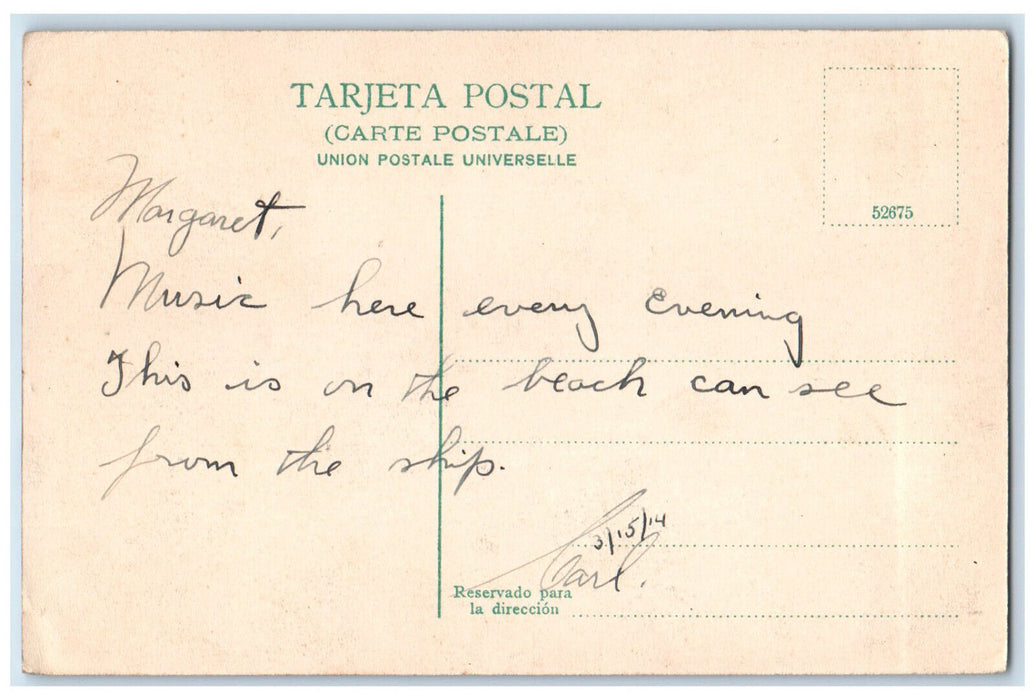 TARJETA POSTAL
(CARTE POSTALE)
UNION POSTALE UNIVERSELLE
52675
Margaret,
Music here every evening
This is on the beach can see
from the ship.
3/15/14
Carl.
Reservado para
la dirección